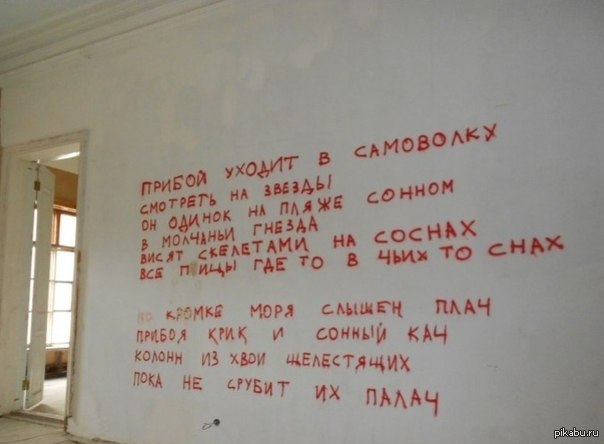 ПРИБОЙ УХОДИТ В САМОВОЛКУ
СМОТРЕТЬ НА ЗВЕЗДЫ
ОН ОДИНОК НА ПЛЯЖЕ СОННОМ
В МОЛЧАНЬИ ГНЕЗДА
ВИСЯТ СКЕЛЕТАМИ НА СОСНАХ
ВСЕ ПТИЦЫ ГДЕ ТО В ЧЬИХ ТО СНАХ
ПО КРОМКЕ МОРЯ СЛЫШЕН ПЛАЧ
ПРИБОЯ КРИК И СОННЫЙ КАЧ
КОЛОНН ИЗ ХВОИ ШЕЛЕСТЯЩИХ
ПОКА НЕ СРУБИТ ИХ ПАЛАЧ
pikabu.ru